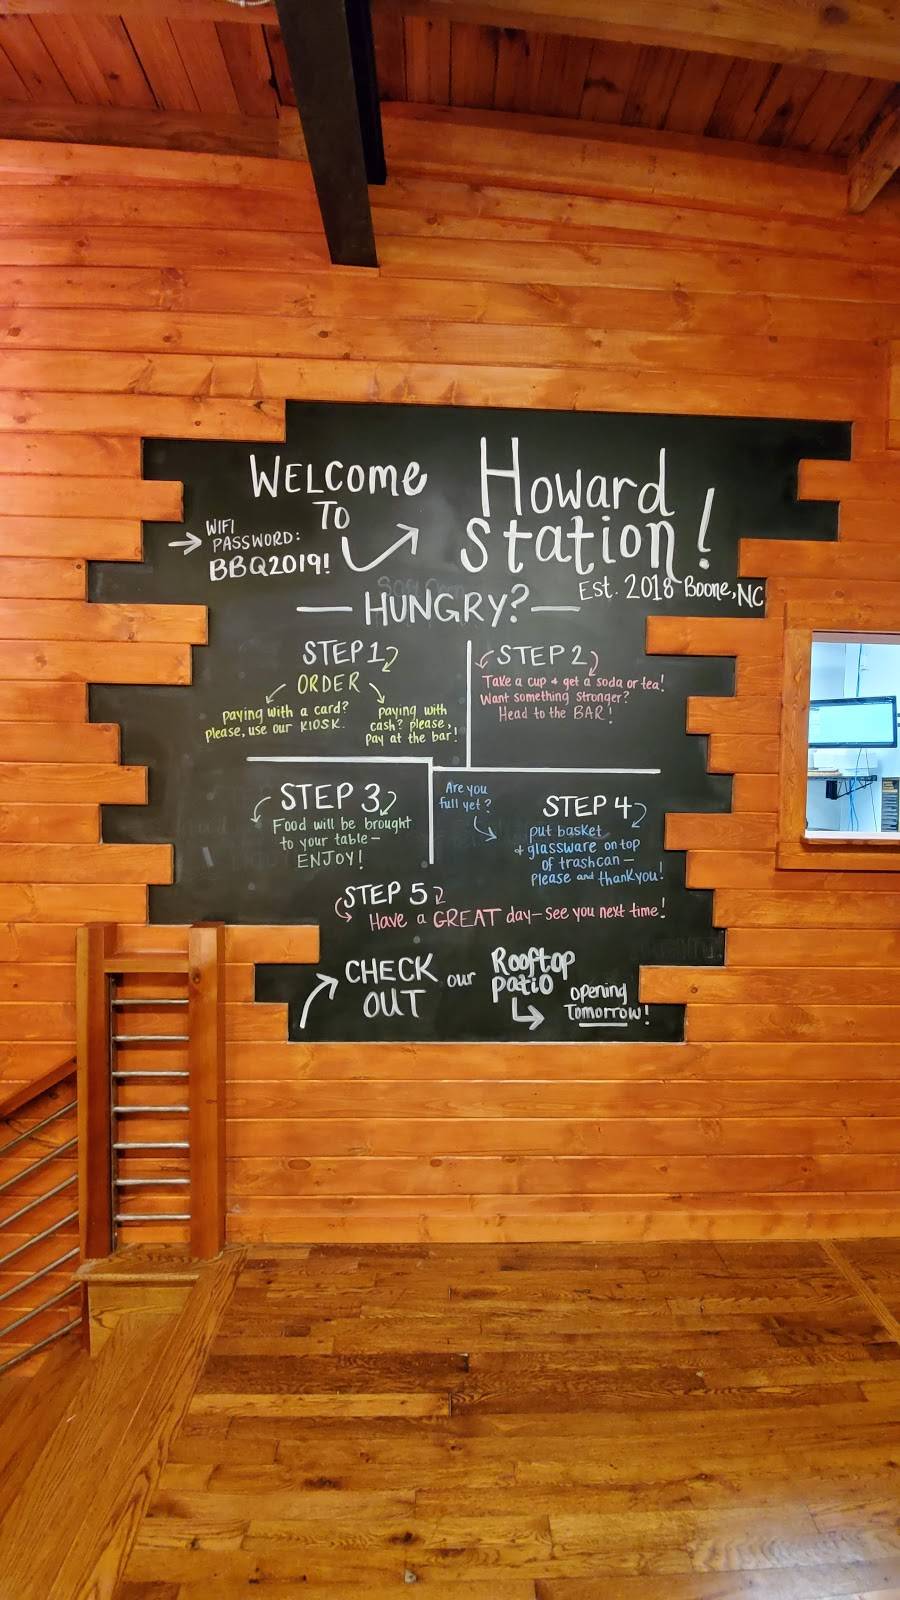 WELCOME
TO
Howard
Station!
WIFI
PASSWORD:
BBQ2019!
Est. 2018 Boone, NC
— HUNGRY? —
STEP 1
ORDER
paying with a card?
please, use our KIOSK.
paying with
cash? please,
pay at the bar!
STEP 2
Take a cup + get a soda or tea!
Want something stronger?
Head to the BAR!
STEP 3
Food will be brought
to your table —
ENJOY!
Are you
full yet?
STEP 4
put basket
+ glassware on top
of trashcan —
Please and thankyou!
STEP 5
Have a GREAT day — see you next time!
CHECK
OUT
our
Rooftop
patio
opening
Tomorrow!